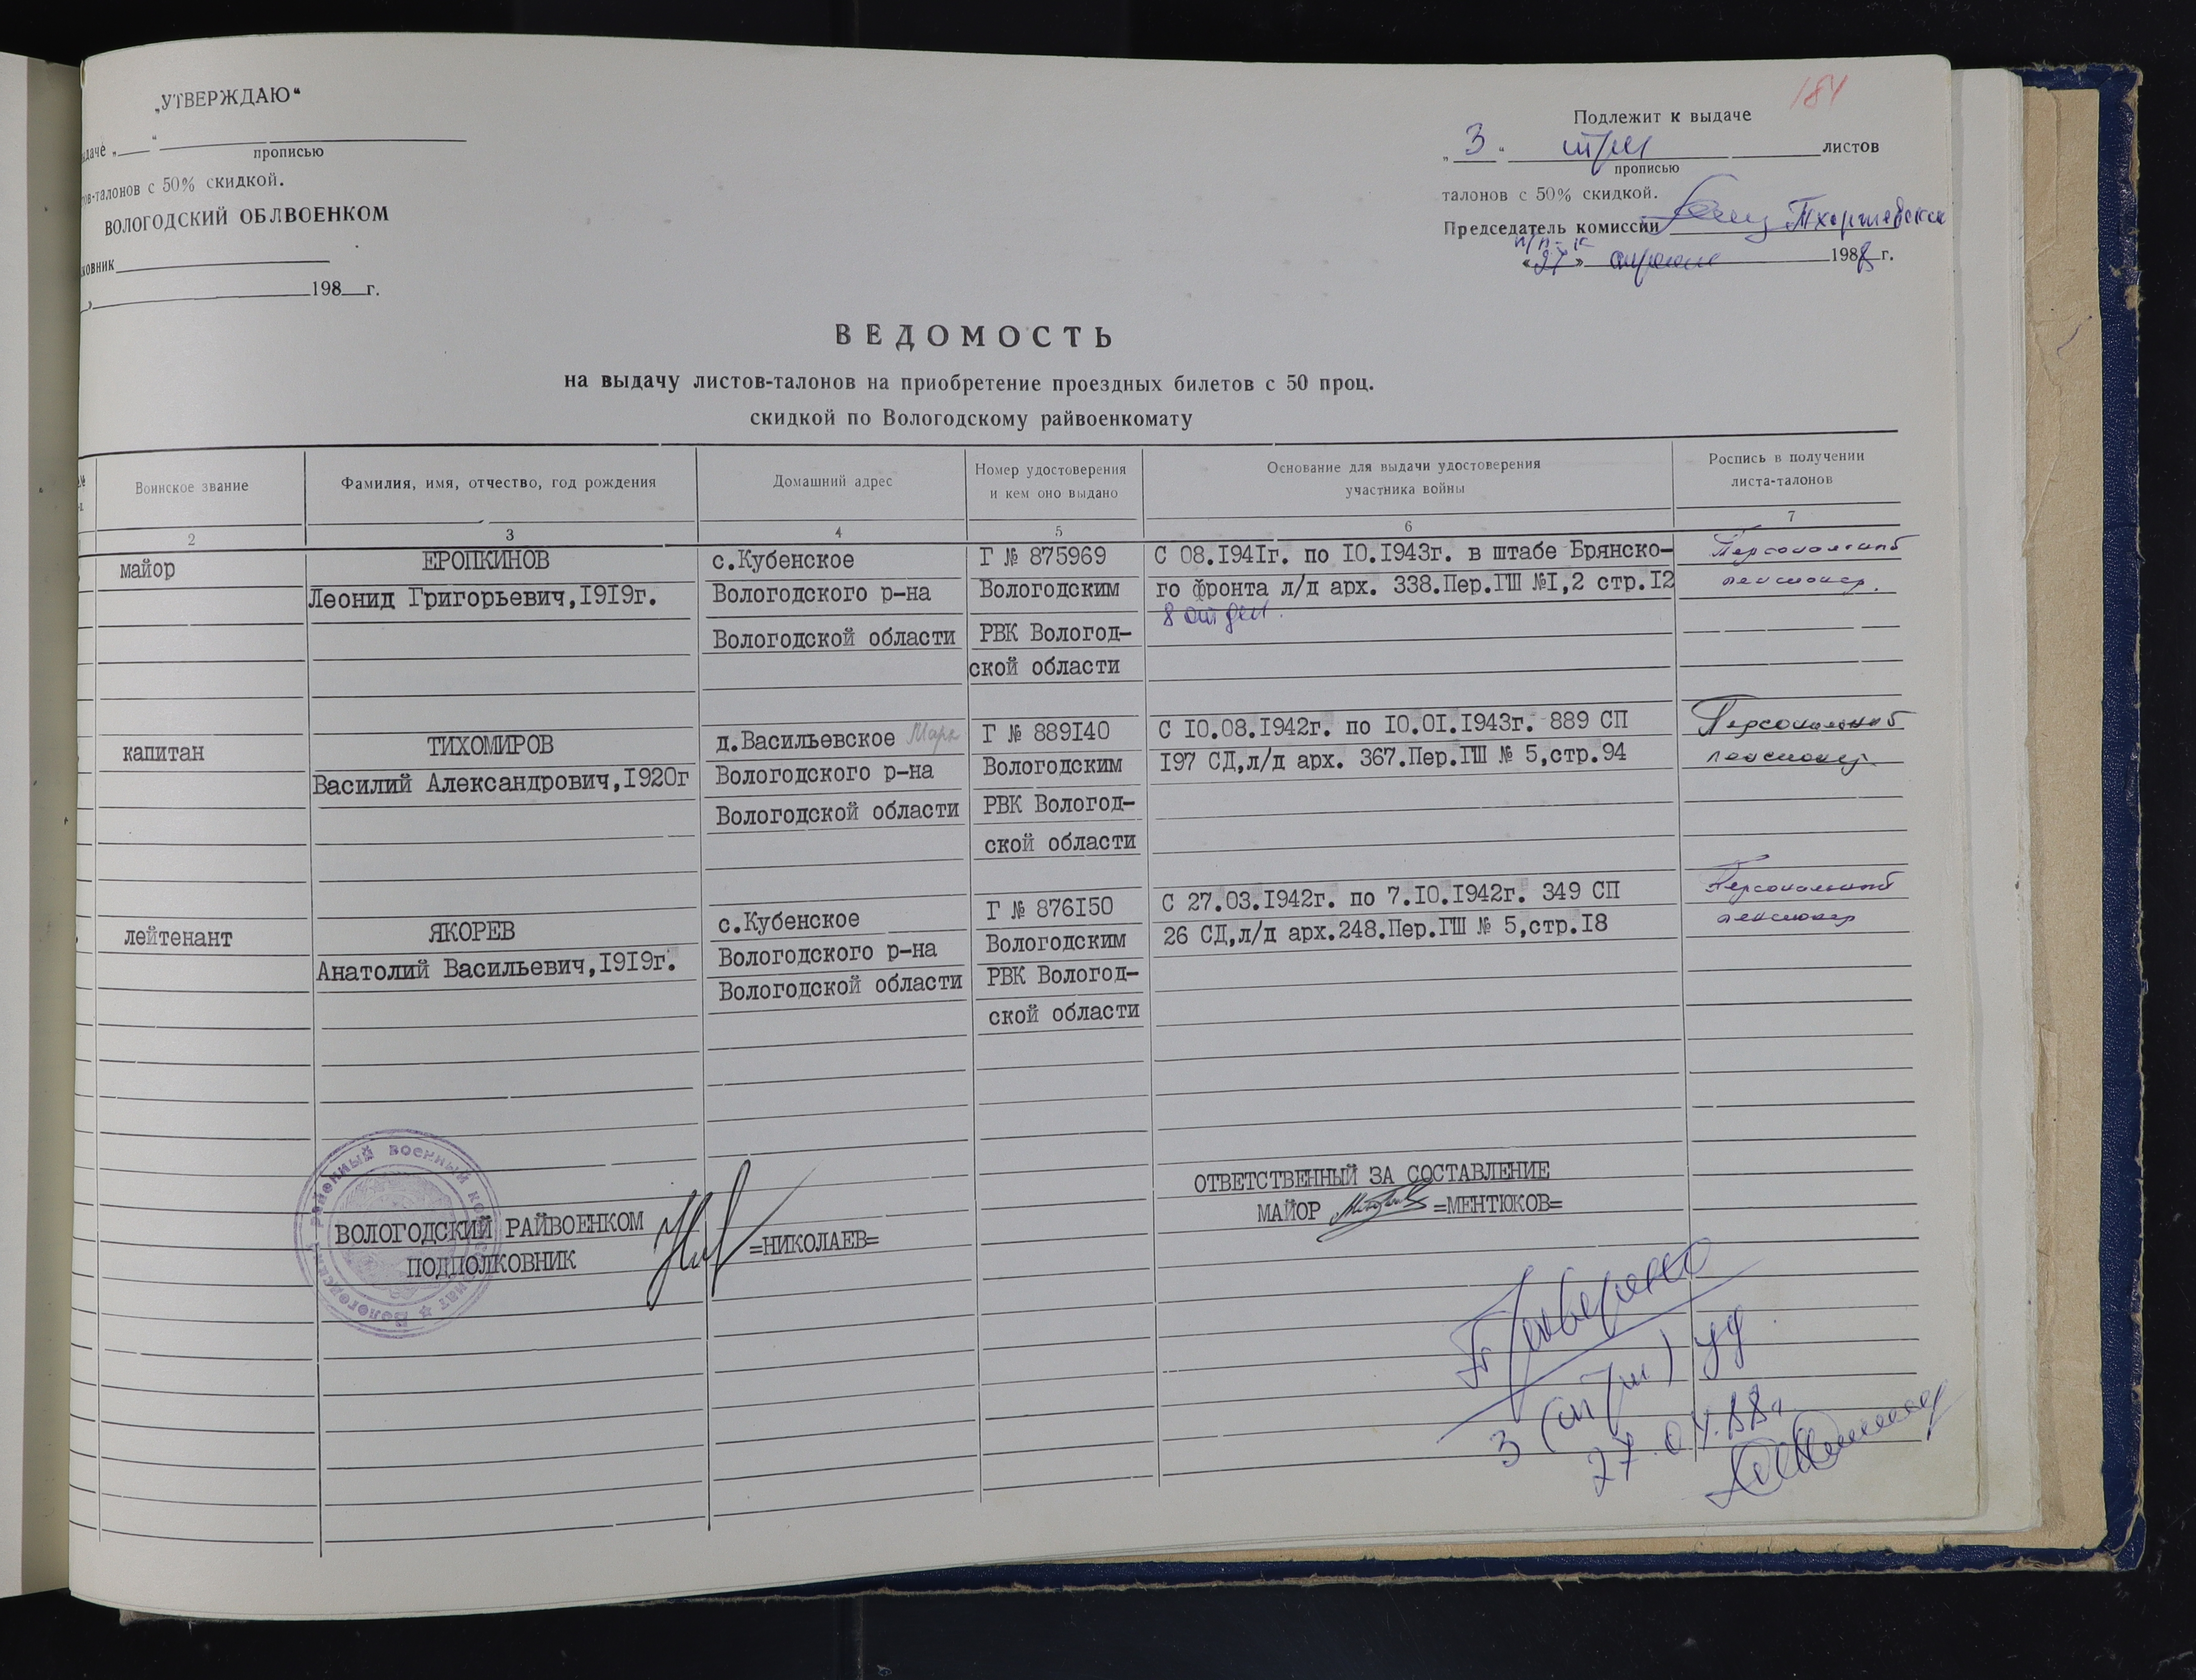 184
„УТВЕРЖДАЮ“
даче „ “
прописью
ов-талонов с 50% скидкой.
ВОЛОГОДСКИЙ ОБЛВОЕНКОМ
ковник
198 г.
Подлежит к выдаче
„ 3 “ три листов
прописью
талонов с 50% скидкой.
Председатель комиссии
п/п-к
«27» апреля 1988 г.
ВЕДОМОСТЬ
на выдачу листов-талонов на приобретение проездных билетов с 50 проц.
скидкой по Вологодскому райвоенкомату
Воинское звание
Фамилия, имя, отчество, год рождения
Домашний адрес
Номер удостоверения
и кем оно выдано
Основание для выдачи удостоверения
участника войны
Роспись в получении
листа-талонов
2 3 4 5 6 7
майор
ЕРОПКИНОВ
Леонид Григорьевич,1919г.
с.Кубенское
Вологодского р-на
Вологодской области
Г № 875969
Вологодским
РВК Вологод-
ской области
С 08.1941г. по 10.1943г. в штабе Брянско-
го фронта л/д арх. 338.Пер.ГШ №1,2 стр.12
8 отдел.
Персональный
пенсионер.
капитан
ТИХОМИРОВ
Василий Александрович,1920г
д.Васильевское
Вологодского р-на
Вологодской области
Г № 889140
Вологодским
РВК Вологод-
ской области
С 10.08.1942г. по 10.01.1943г. 889 СП
197 СД,л/д арх. 367.Пер.ГШ № 5,стр.94
Персональный
пенсионер
лейтенант
ЯКОРЕВ
Анатолий Васильевич,1919г.
с.Кубенское
Вологодского р-на
Вологодской области
Г № 876150
Вологодским
РВК Вологод-
ской области
С 27.03.1942г. по 7.10.1942г. 349 СП
26 СД,л/д арх.248.Пер.ГШ № 5,стр.18
Персональный
пенсионер
ВОЛОГОДСКИЙ РАЙВОЕНКОМ
ПОДПОЛКОВНИК =НИКОЛАЕВ=
ОТВЕТСТВЕННЫЙ ЗА СОСТАВЛЕНИЕ
МАЙОР =МЕНТЮКОВ=
Проверено
3 (три) уд
27.04.88г.